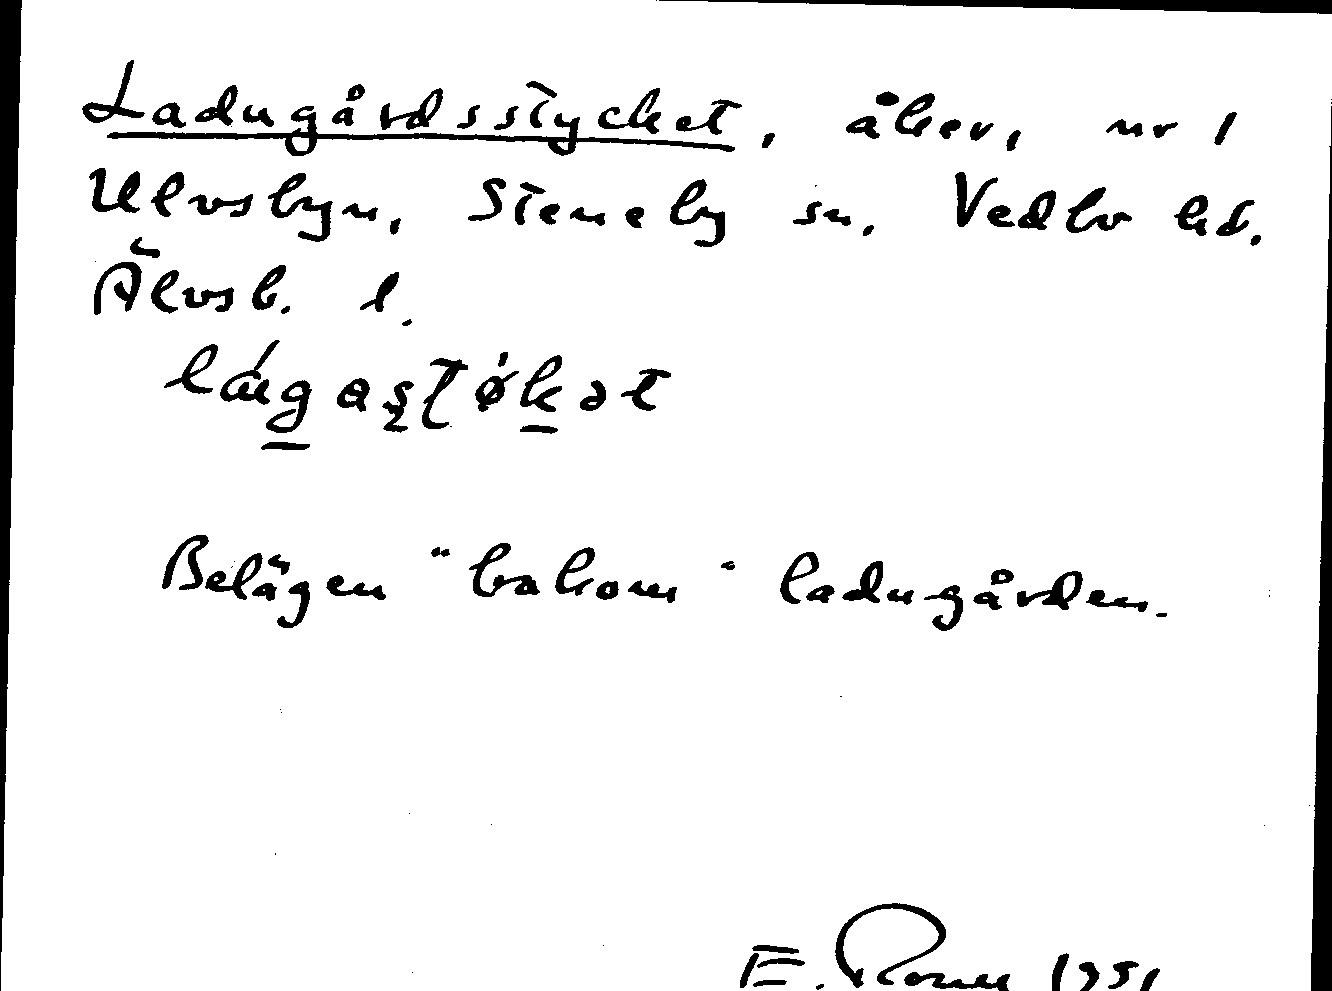 Ladugårdsstycket, åker, nr 1
Ulvsbyn, Steneby sn. Vedbo hd.
Älvsb. l.
Belägen "bakom" ladugården.
E. 1951